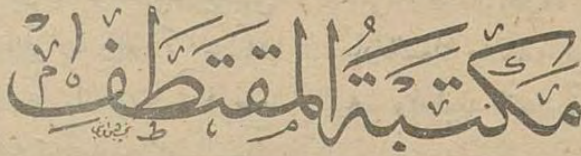 مَكتَبَةُ المُقتَطَفِ